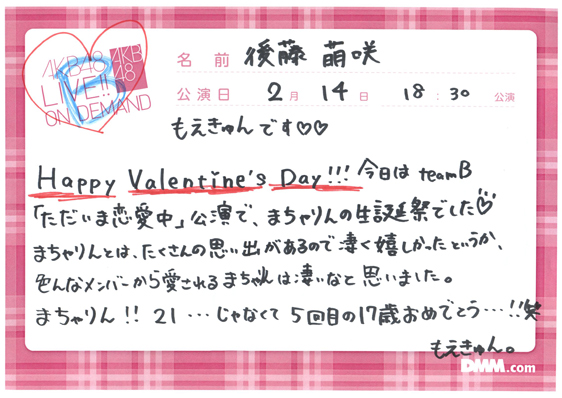 AKB48
LIVE!!
ON DEMAND
AKB
48
名前 後藤 萌咲
公演日 2月 14日 18:30 公演
もえきゅんです♡♡
Happy Valentine's Day!!! 今日は teamB
「ただいま恋愛中」公演で、まちゃりんの生誕祭でした♡
まちゃりんとは、たくさんの思い出があるので凄く嬉しかったというか、
色んなメンバーから愛されるまちゃりんは凄いなと思いました。
まちゃりん!! 21…じゃなくて 5回目の17歳おめでとう…!!笑
もえきゅん。
DMM.com